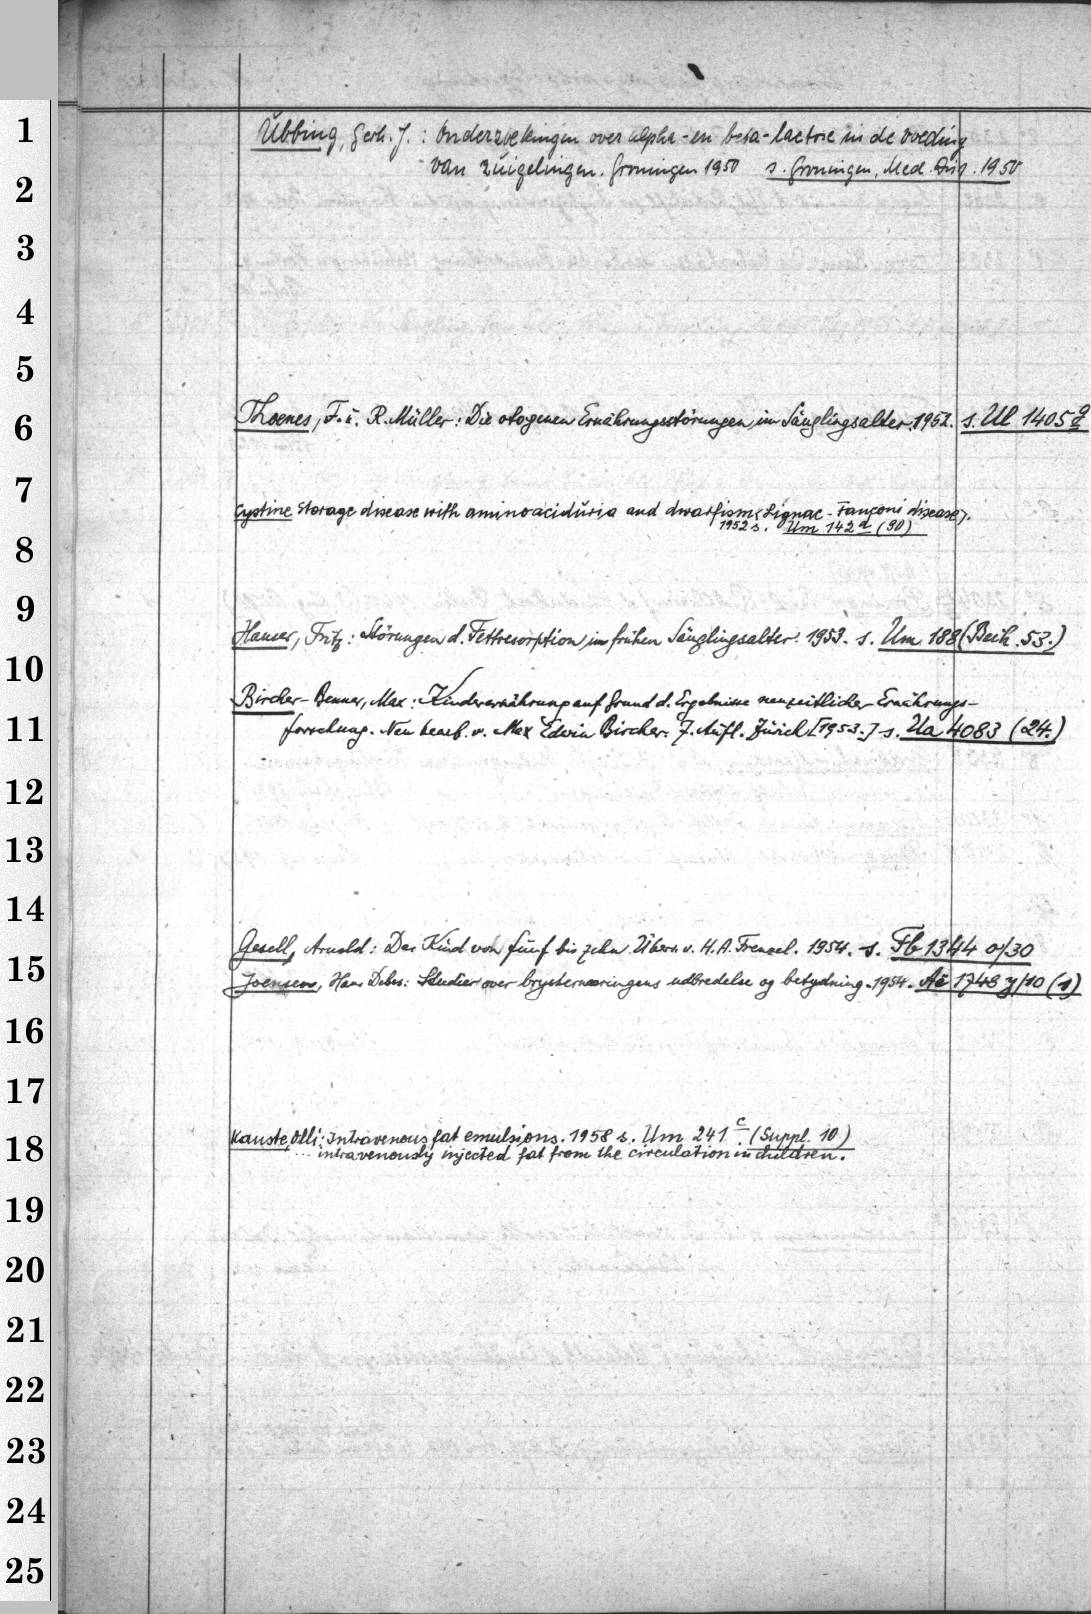 1
Übbing, Gerh. J.: Onderzoekingen over alpha- en beta-lactose in de voeding
2
van zuigelingen. Groningen 1950 s. Groningen, Med. Diss. 1950
3
4
5
6
Thoenes, F. u. R. Müller: Die otogenen Ernährungsstörungen im Säuglingsalter. 1952. s. Ul 1405 g
7
Cystine Storage disease with aminoaciduria and dwarfism (Lignac-Fanconi disease).
1952 s. Um 142 d (90)
8
9
Hauser, Fritz: Störungen d. Fettresorption im frühen Säuglingsalter. 1953. s. Um 188 (Beih. 53.)
10
Bircher-Benner, Max: Kinderernährung auf Grund d. Ergebnisse neuzeitlicher Ernährungs-
11
forschung. Neu bearb. v. Max Edwin Bircher. 7. Aufl. Zürich [1953.] s. Ua 4083 (24.)
12
13
14
Gesell, Arnold: Das Kind von fünf bis zehn. Übers. v. H. A. Frenzel. 1954. s. Fb 1344 o/30
15
Joensen, Hans Debes: Studier over brysternæringens udbredelse og betydning. 1954. Ae 1748 y/10 (1)
16
17
18
Kauste, Olli: Intravenous fat emulsions. 1958 s. Um 241 c (Suppl. 10)
... intravenously injected fat from the circulation in children.
19
20
21
22
23
24
25